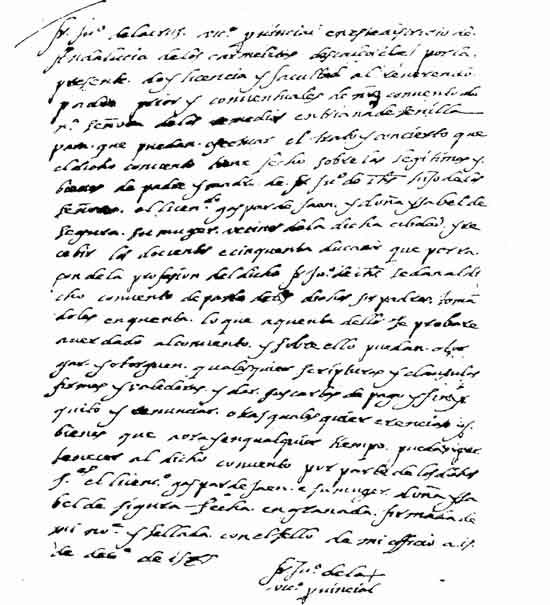 fr. Juº. dela cruz. vicº. provincial en este districto de
Andalucia delos carmelitas descalços &. por la
presente. doy licencia y facultad al Reverendo
padre prior y conventuales de nrº convento de
nrª. Señora de los Remedios en triana de sevilla
para. que puedan. efectuar. el trato y concierto que
el dicho convento tiene fecho sobre las legitimas y
bienes de padre y madre. de fr. Juº. de Ihs hijo de los
señores. el licendo. gaspar de Jaen. y doña ysabel de
segura. su muger. vecinos de la dicha cibdad. y re
cebir los docientos e cinquenta ducados que por ra
çon de la profesion del dicho fr. Joº. de ihs. le dan al di
cho convento de parte de los dichos sus padres. toman
doles en quenta. lo que a quenta dello se probare
aver dado al convento. y sobre ello puedan. otor
gar. y otorguen. qualesquier scripturas y clausulas
firmes y valederas. y dar. sus cartas de pago y finiqº
quito y renunciar. otras qualesquier erencias y
bienes que aora y en qualquier tiempo. puedan per
tenecer al dicho convento por parte de los dichos
el licenº. gaspar de Jaen. e su muger. doña ysa
bel de segura. fecha. en granada. firmada de
mi noe. y sellada. con el sello de mi officio a
de de
fr. Juº. dela +
vicº. provincial